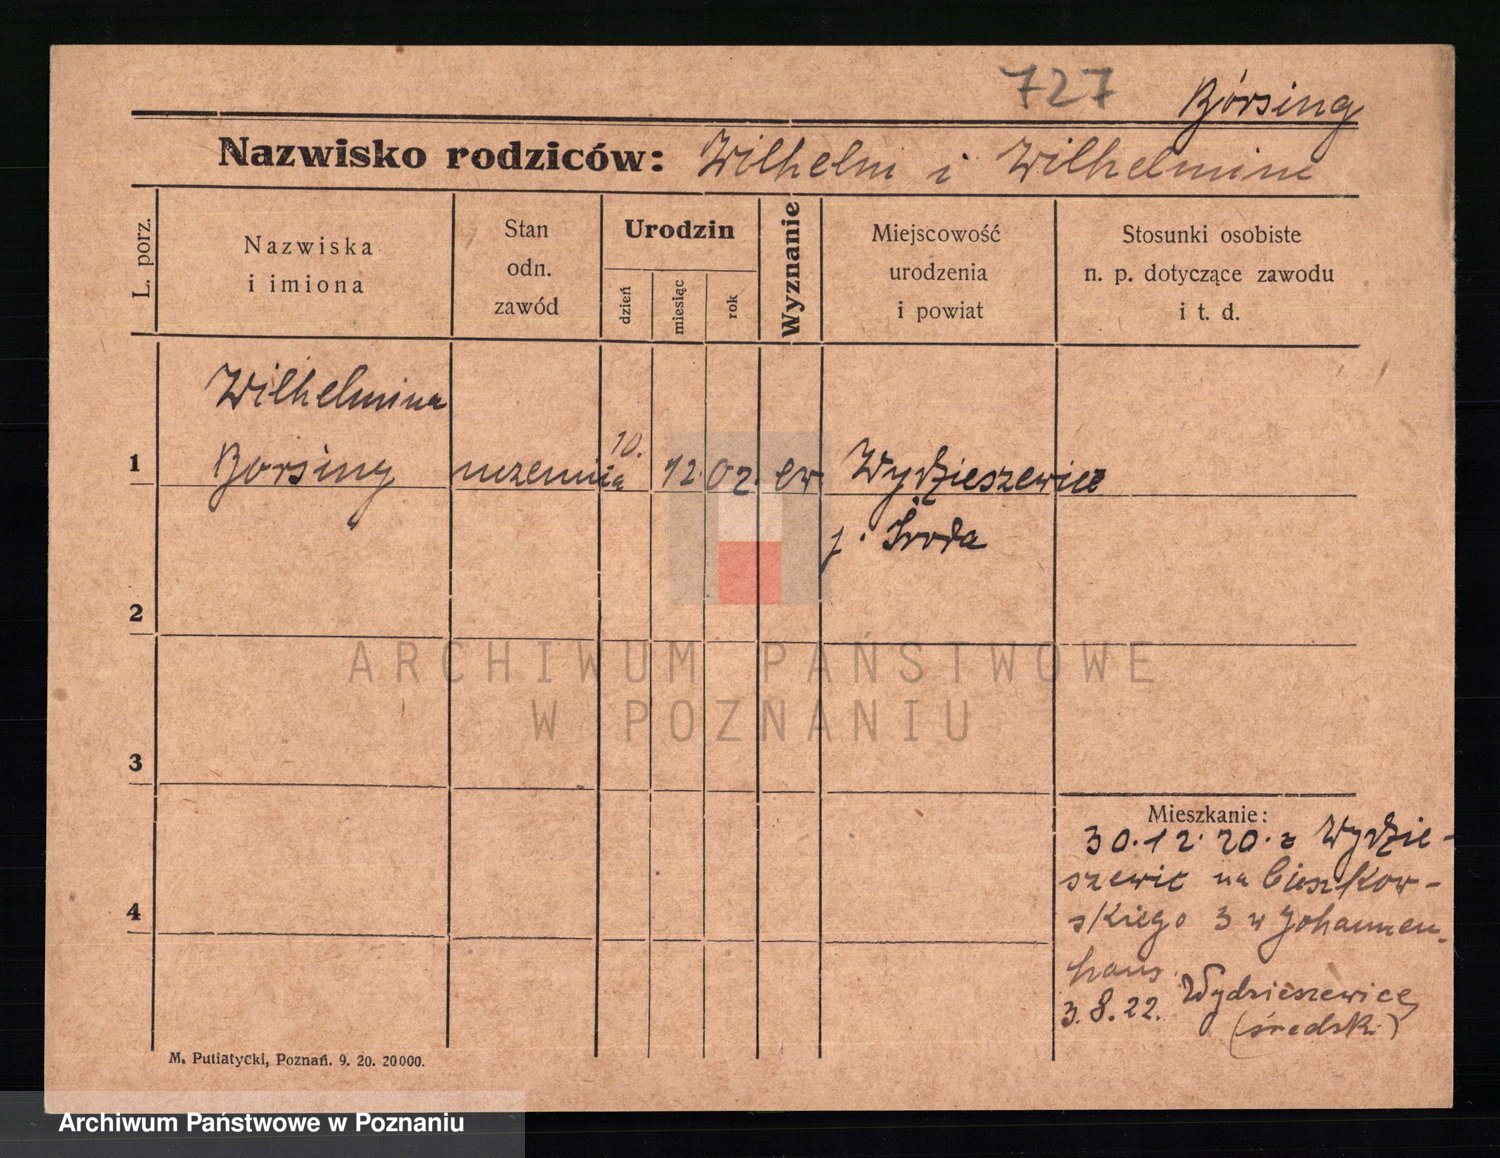 727 Börsing
Nazwisko rodziców: Wilhelm i Wilhelmine
L. porz.
Nazwiska
i imiona
Stan
odn.
zawód
Urodzin
dzień
miesiąc
rok
Wyznanie
Miejscowość
urodzenia
i powiat
Stosunki osobiste
n. p. dotyczące zawodu
i t. d.
Wilhelmina
1 Borsing uczennica 10. 12. 02. ew Wydzieszewice
p. Środa
2
3
4
Mieszkanie:
30.12.20. z Wydzie-
szewic na Cieszkow-
skiego 3 w Johannen-
haus
3.8.22. Wydzieszewice
(średzki)
M. Putiatycki, Poznań. 9. 20. 20000.
ARCHIWUM PAŃSTWOWE
W POZNANIU
Archiwum Państwowe w Poznaniu